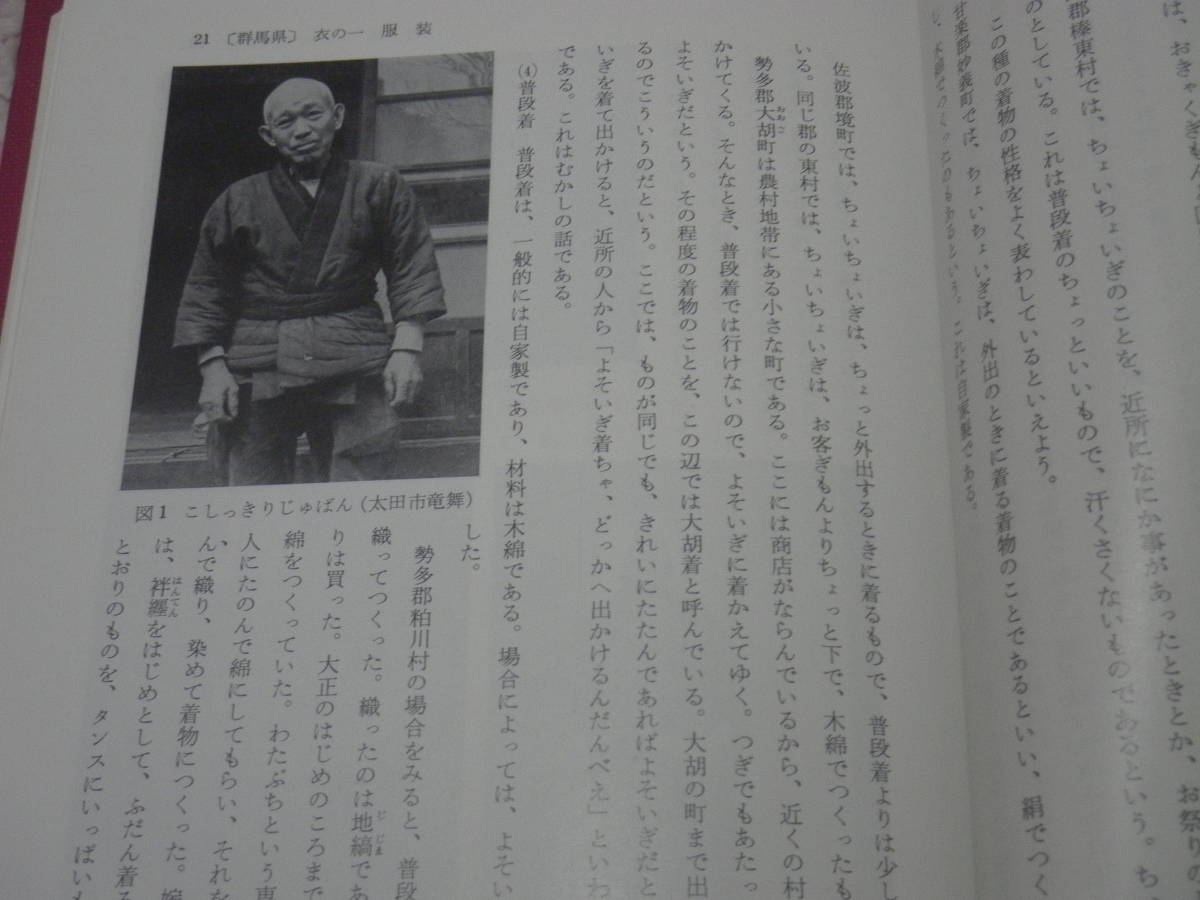 は、おきゃくぎもん
郡榛東村では、ちょいちょいぎのことを、近所になにか事があったときとか、お祭りの
のとしている。これは普段着のちょっといいもので、汗くさくないものであるという。ち
この種の着物の性格をよく表わしているといえよう。
甘楽郡妙義町では、ちょいちょいぎは、外出のときに着る着物のことであるといい、絹でつく
のもあるという。これは自家製である。
21 〔群馬県〕 衣の一 服 装
佐波郡境町では、ちょいちょいぎは、ちょっと外出するときに着るもので、普段着よりは少し
いる。同じ郡の東村では、ちょいちょいぎは、お客ぎもんよりちょっと下で、木綿でつくったも
勢多郡大胡町は農村地帯にある小さな町である。ここには商店がならんでいるから、近くの村
おおご
かけてくる。そんなとき、普段着では行けないので、よそいぎに着かえてゆく。つぎでもあたっ
よそいぎだという。その程度の着物のことを、この辺では大胡着と呼んでいる。大胡の町まで出
るのでこういうのだという。ここでは、ものが同じでも、きれいにたたんであればよそいぎだと
いぎを着て出かけると、近所の人から「よそいぎ着ちゃ、どっかへ出かけるんだんべえ」といわ
である。これはむかしの話である。
(4)普段着 普段着は、一般的には自家製であり、材料は木綿である。場合によっては、よそい
した。
勢多郡粕川村の場合をみると、普段
織ってつくった。織ったのは地縞であ
じじま
りは買った。大正のはじめのころまで
綿をつくっていた。わたぶちという専
人にたのんで綿にしてもらい、それを
んで織り、染めて着物につくった。嫁
は、袢纏をはじめとして、ふだん着る
はんてん
とおりのものを、タンスにいっぱいも
図1 こしっきりじゅばん(太田市竜舞)